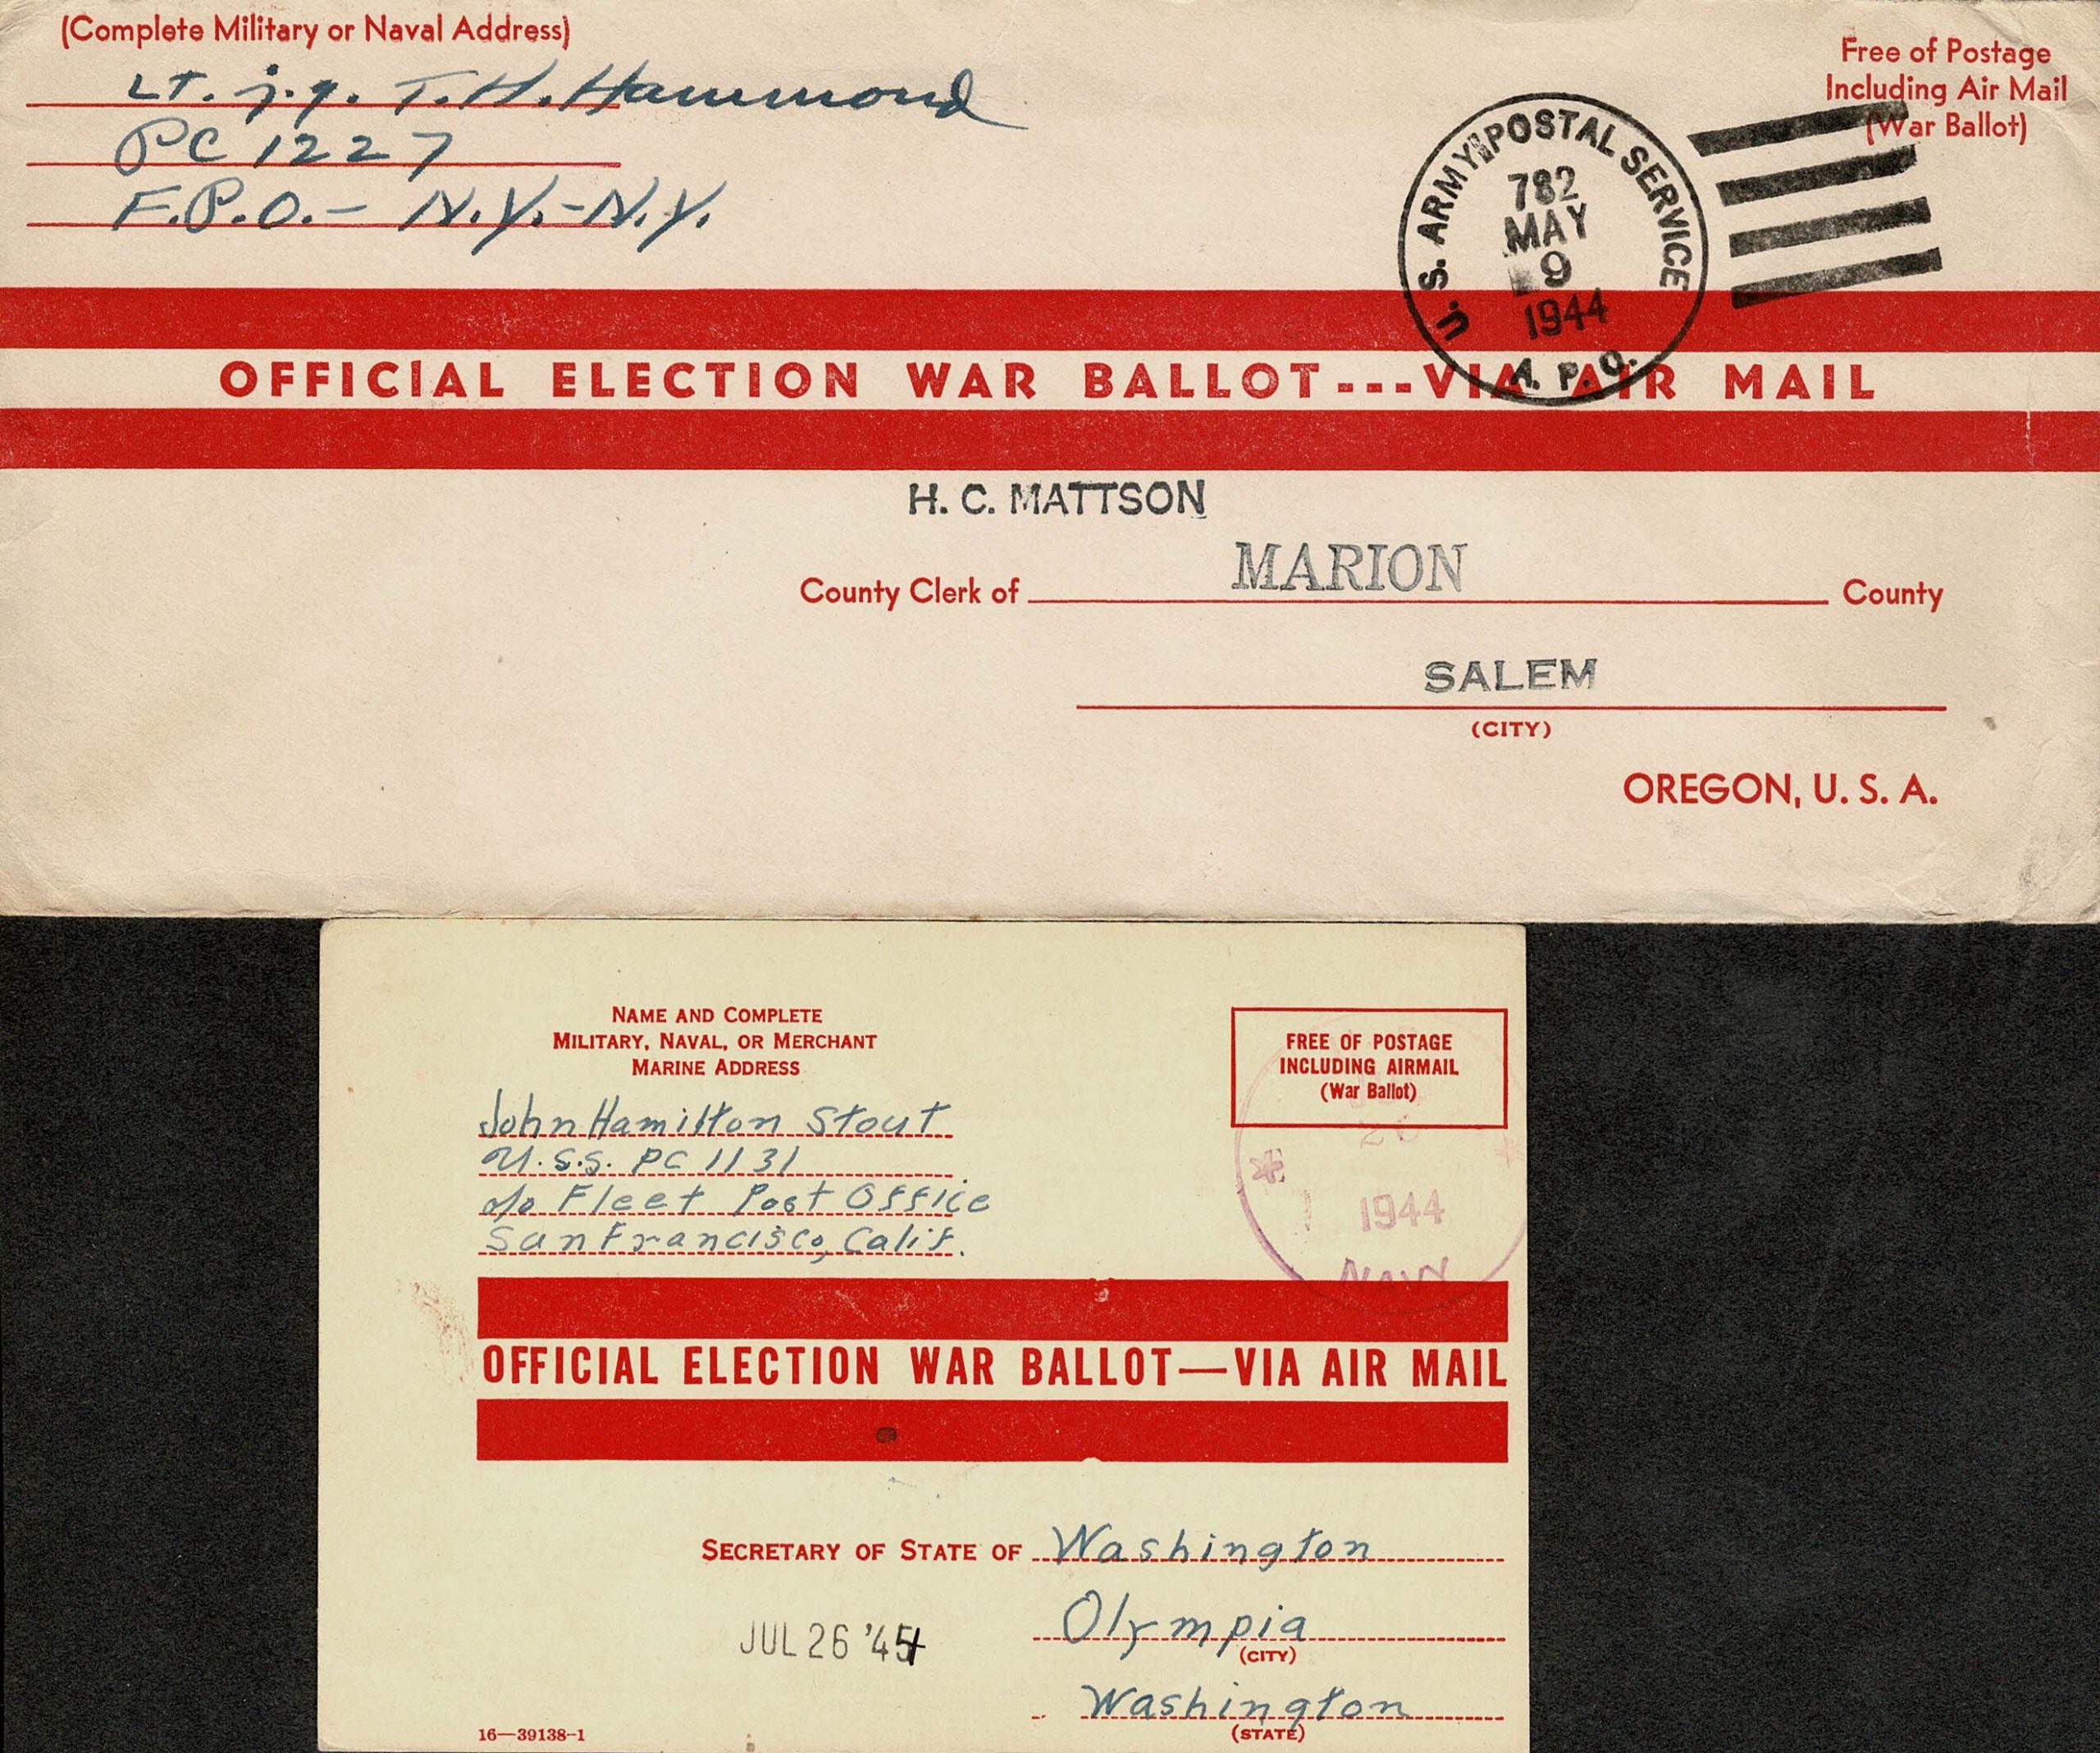 (Complete Military or Naval Address)
Lt. j.g. T. H. Hammond
PC 1227
F.P.O. - N.Y. - N.Y.
Free of Postage
Including Air Mail
(War Ballot)
U. S. ARMY POSTAL SERVICE
782
MAY
9
1944
A. P. O.
OFFICIAL ELECTION WAR BALLOT---VIA AIR MAIL
H. C. MATTSON
County Clerk of MARION County
SALEM
(CITY)
OREGON, U. S. A.
NAME AND COMPLETE
MILITARY, NAVAL, OR MERCHANT
MARINE ADDRESS
John Hamilton Stout
U.S.S. PC 1131
c/o Fleet Post Office
San Francisco, Calif.
FREE OF POSTAGE
INCLUDING AIRMAIL
(War Ballot)
1944
NAVY
OFFICIAL ELECTION WAR BALLOT—VIA AIR MAIL
SECRETARY OF STATE OF Washington
Olympia
(CITY)
JUL 26 '44
Washington
(STATE)
16—39138-1